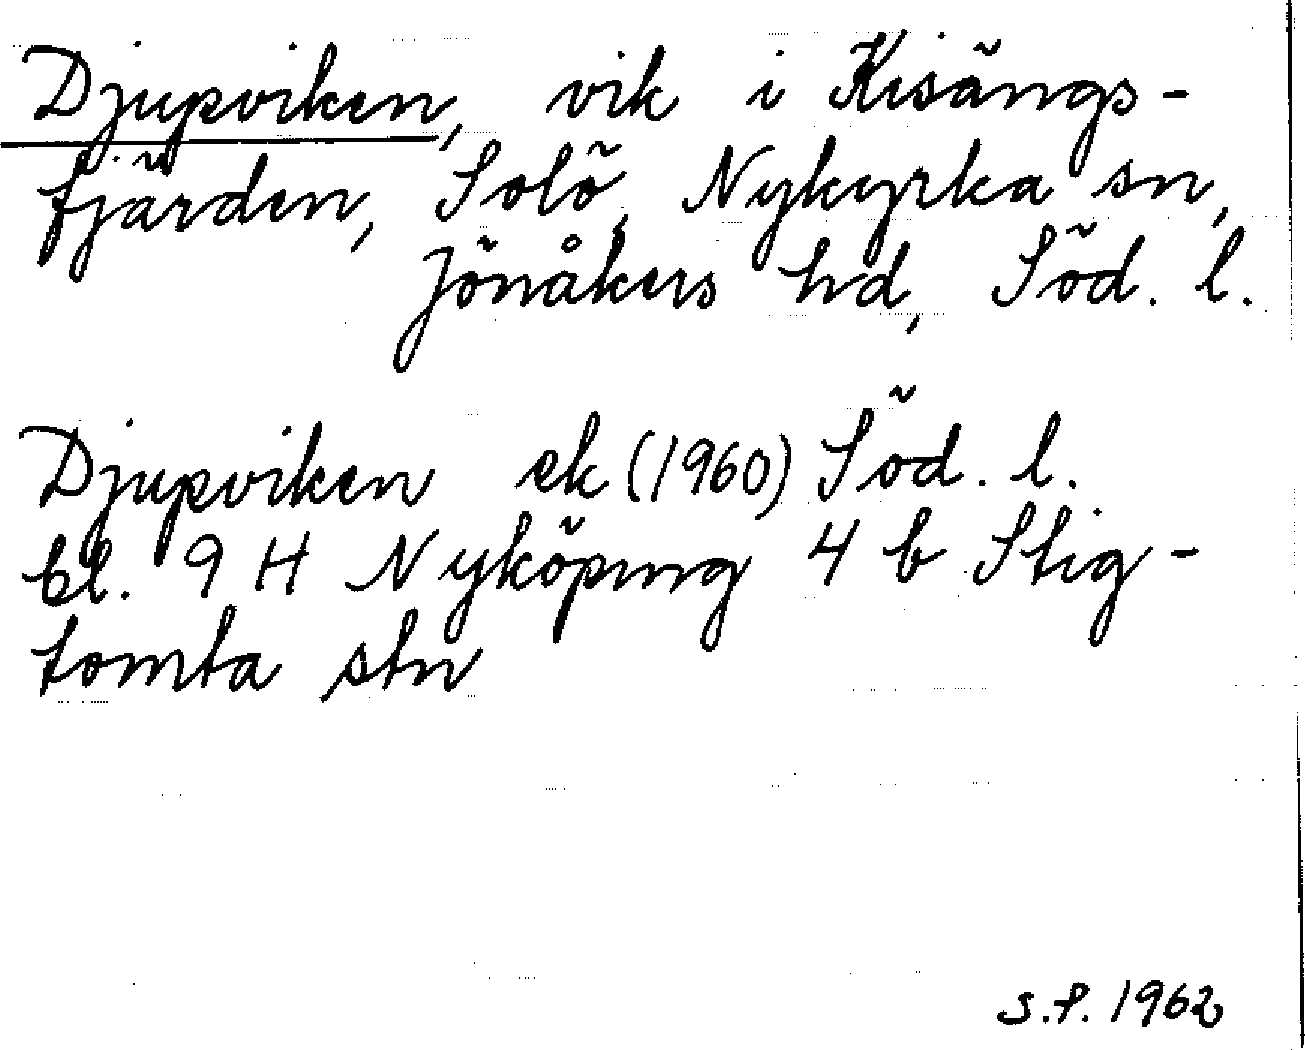 Djupviken, vik i Kisängs-
fjärden, Solö, Nykyrka sn,
Jönåkers hd, Söd. l.
Djupviken ek (1960) Söd. l.
bl. 9 H Nyköping 4 b Stig-
tomta stn
S.P. 1962